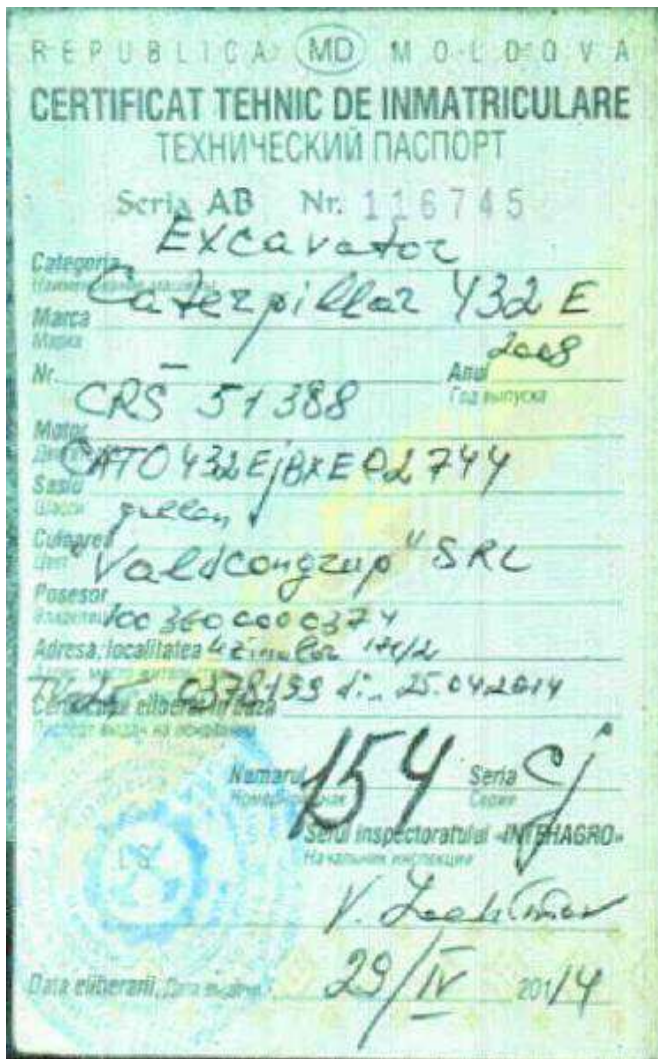 REPUBLICA MD MOLDOVA
CERTIFICAT TEHNIC DE INMATRICULARE
ТЕХНИЧЕСКИЙ ПАСПОРТ
Seria AB Nr. 116745
Excavator
Categoria
Наименование машины
Caterpillar 432 E
Marca
Марка
2008
Nr. — Anul
Год выпуска
CRS 51388
Motor
CAT0432EjBXE02744
Sasiu
Шасси
galben
Culoarea
Цвет
"Valdcongrup" SRL
Posesor
Владелец
1003600000374
Adresa, localitatea Uzinelor 171/2
0378199 din 25.04.2014
Certificatul eliberat in baza
Паспорт выдан на основании
Numarul 154 Seria Cj
Номерной знак Серия
Seful inspectoratului «INTEHAGRO»
Начальник инспекции
L.S.
V.
Data eliberarii, Дата выдачи 29/IV 2014